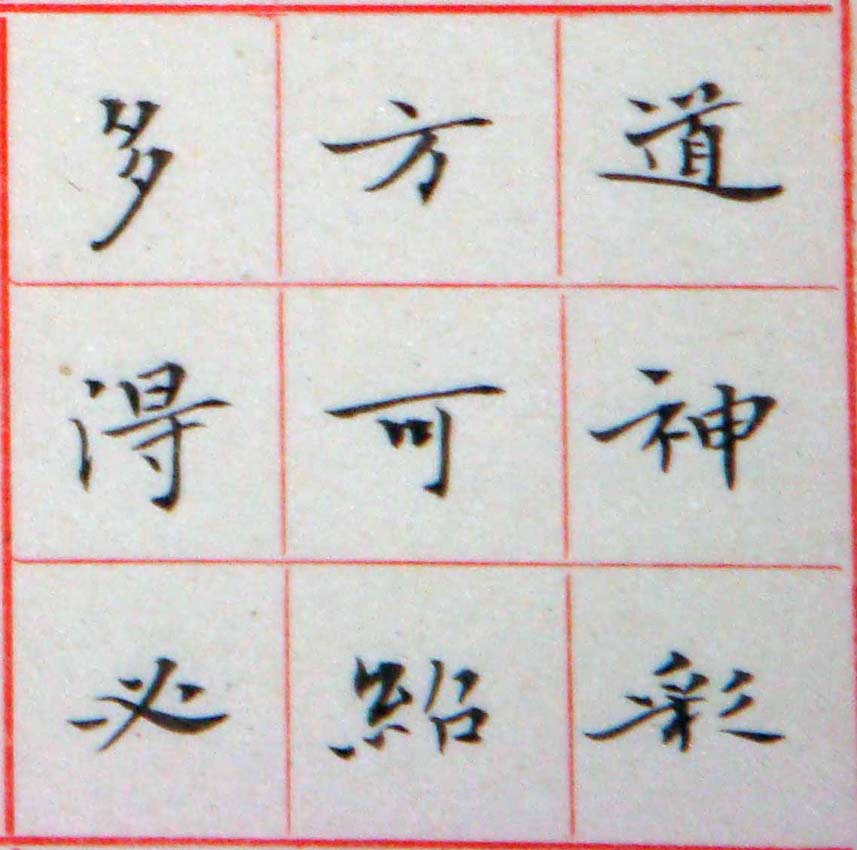 道神彩
方可紹
多得必